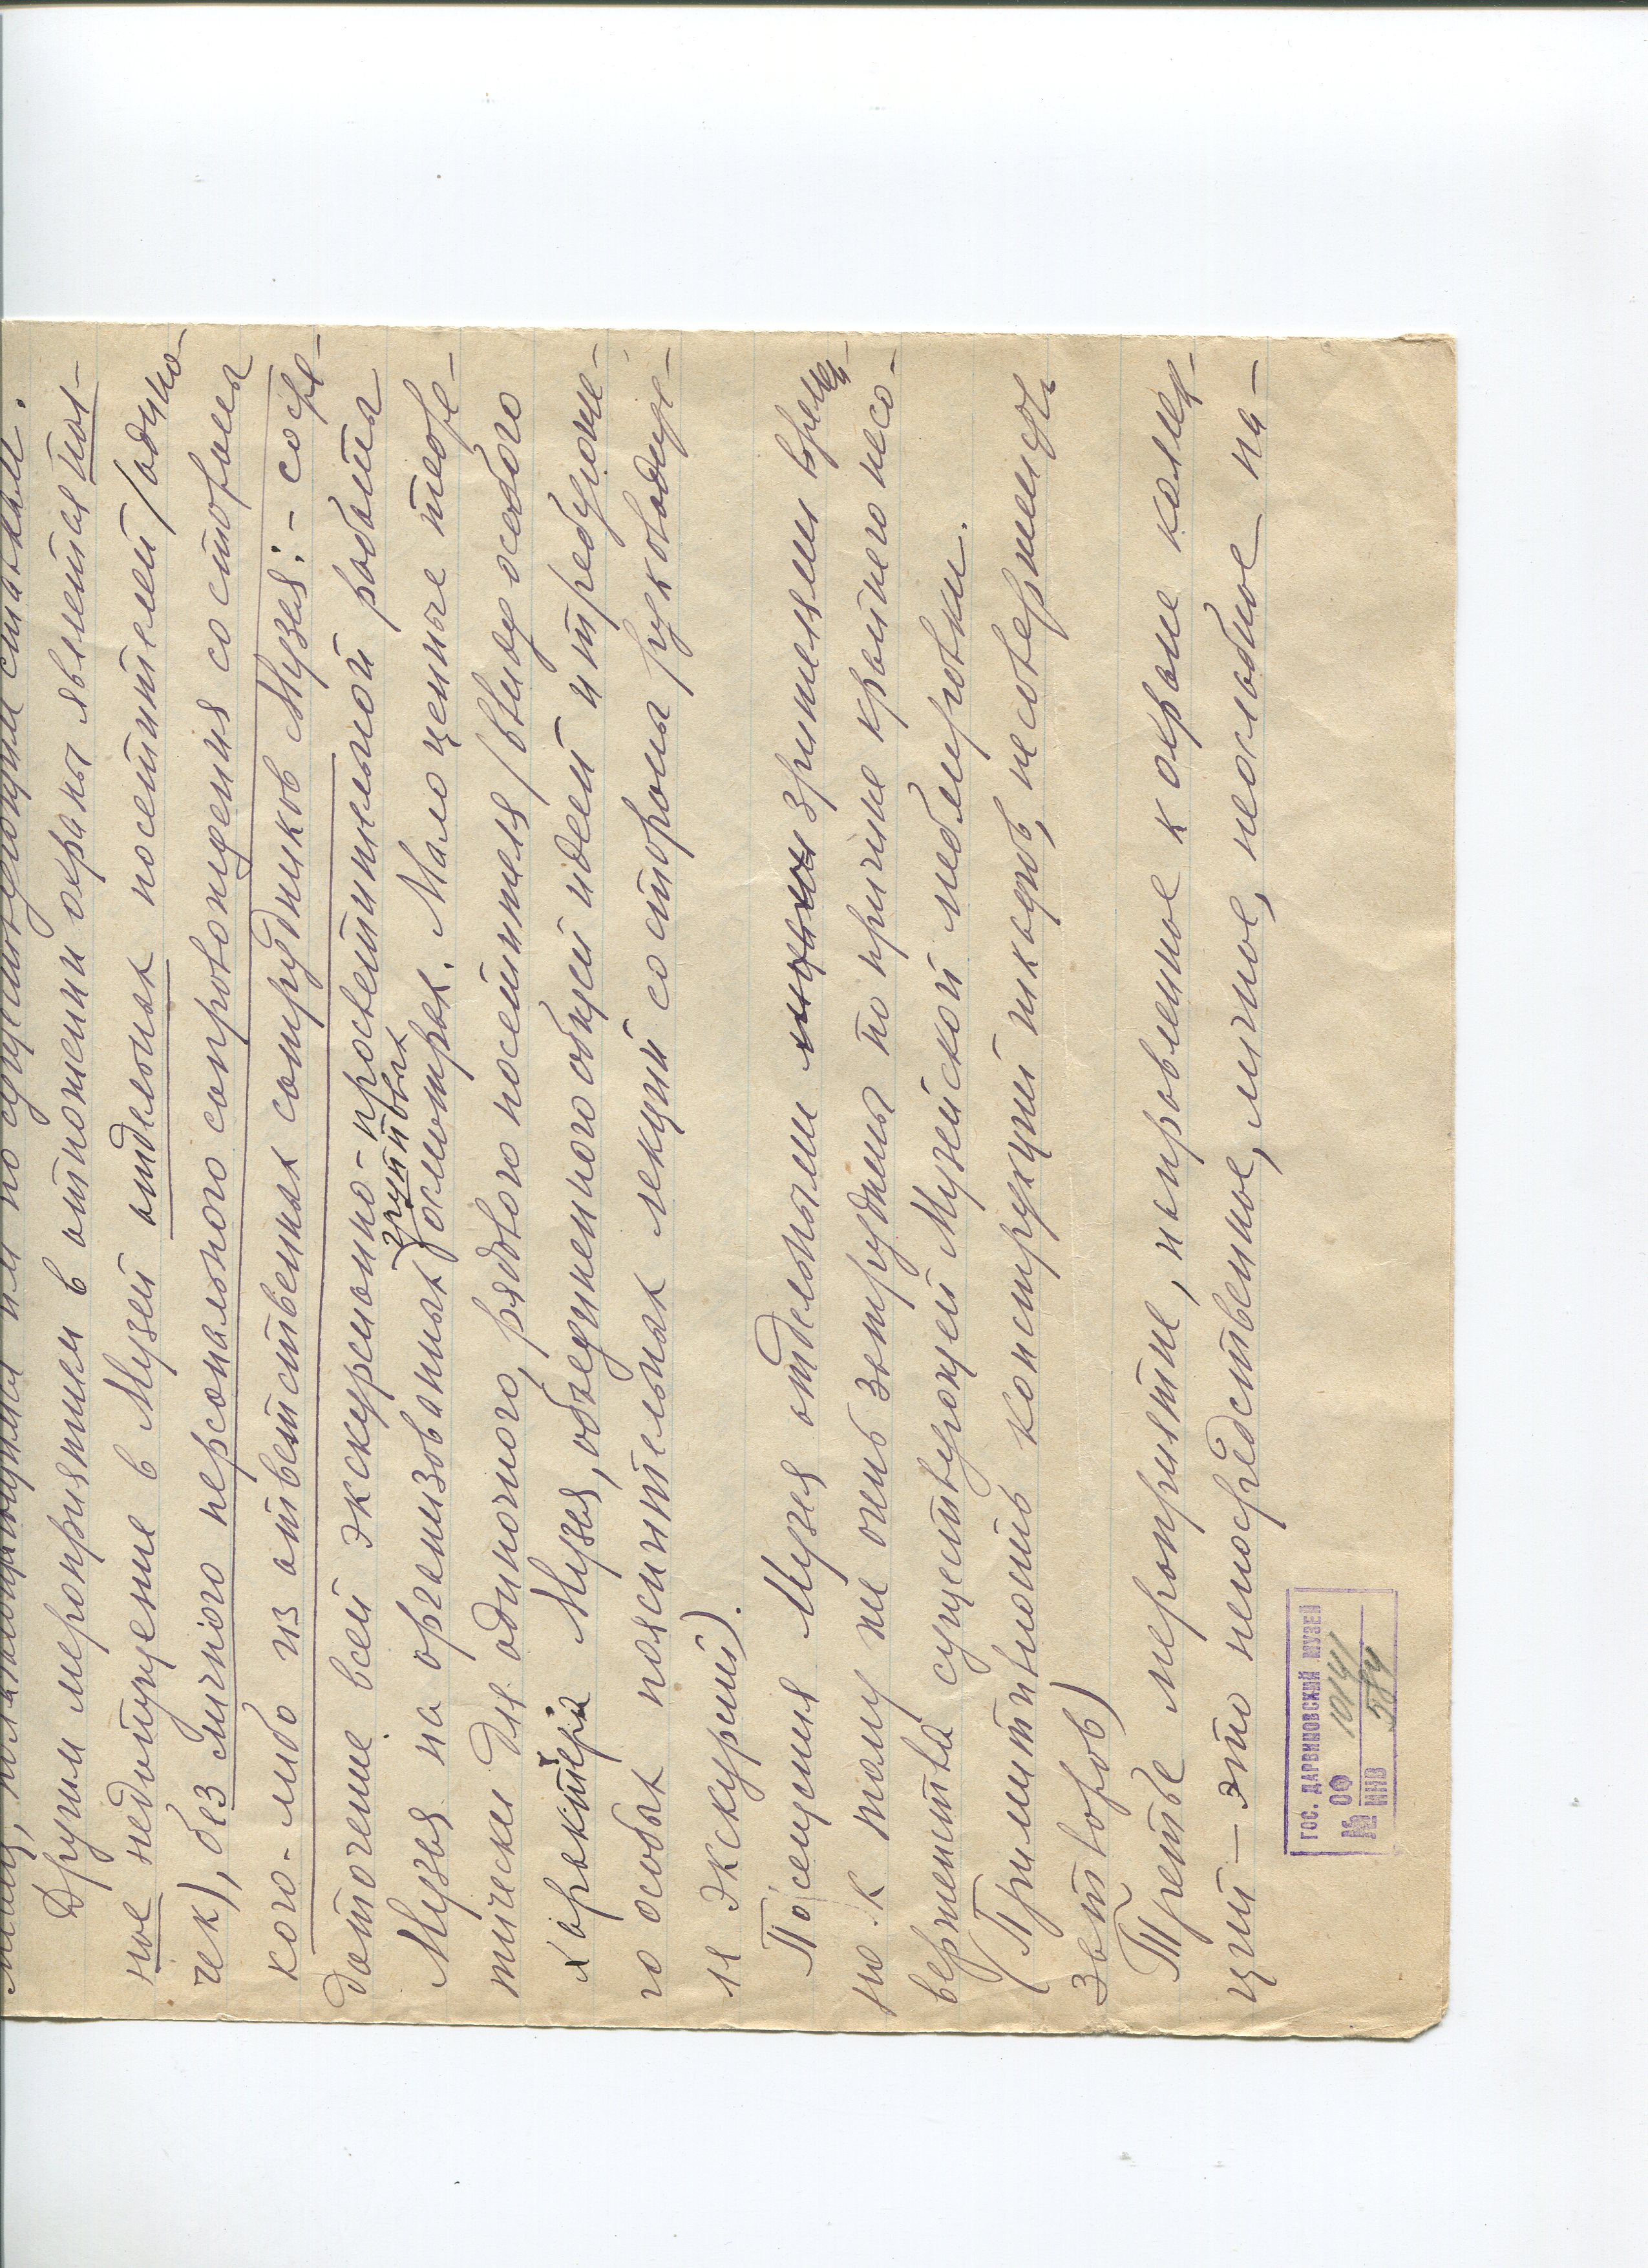 по существующим спискам.
Другим мероприятием в отношении охраны является пол-
ное недопущение в Музей отдельных посетителей (одино-
чек), без личного персонального сопровождения со стороны
кого-либо из ответственных сотрудников Музея: - сосре-
доточение всей экскурсионно-просветительной работы
групповых
Музея на организованных осмотрах. Малоценные теоре-
тически для одиночного, рядового посетителя (ввиду особого
характера Музея, объединенного общей идеей и требующе-
го особых пояснительных лекций со стороны руководице-
ля экскурсий).
Посещения Музея отдельными зрителями времен-
но к тому же очень затруднены по причине крайнего несо-
вершенства существующей Музейской меблировки.
(Примитивность конструкций шкафов, несовершенность
затворов)
Третье мероприятие, направленное к охране коллек-
ций – это непосредственное, личное, неослабное на-
ГОС. ДАРВИНОВСКИЙ МУЗЕЙ
№ ОФ 10141
ИНВ 584